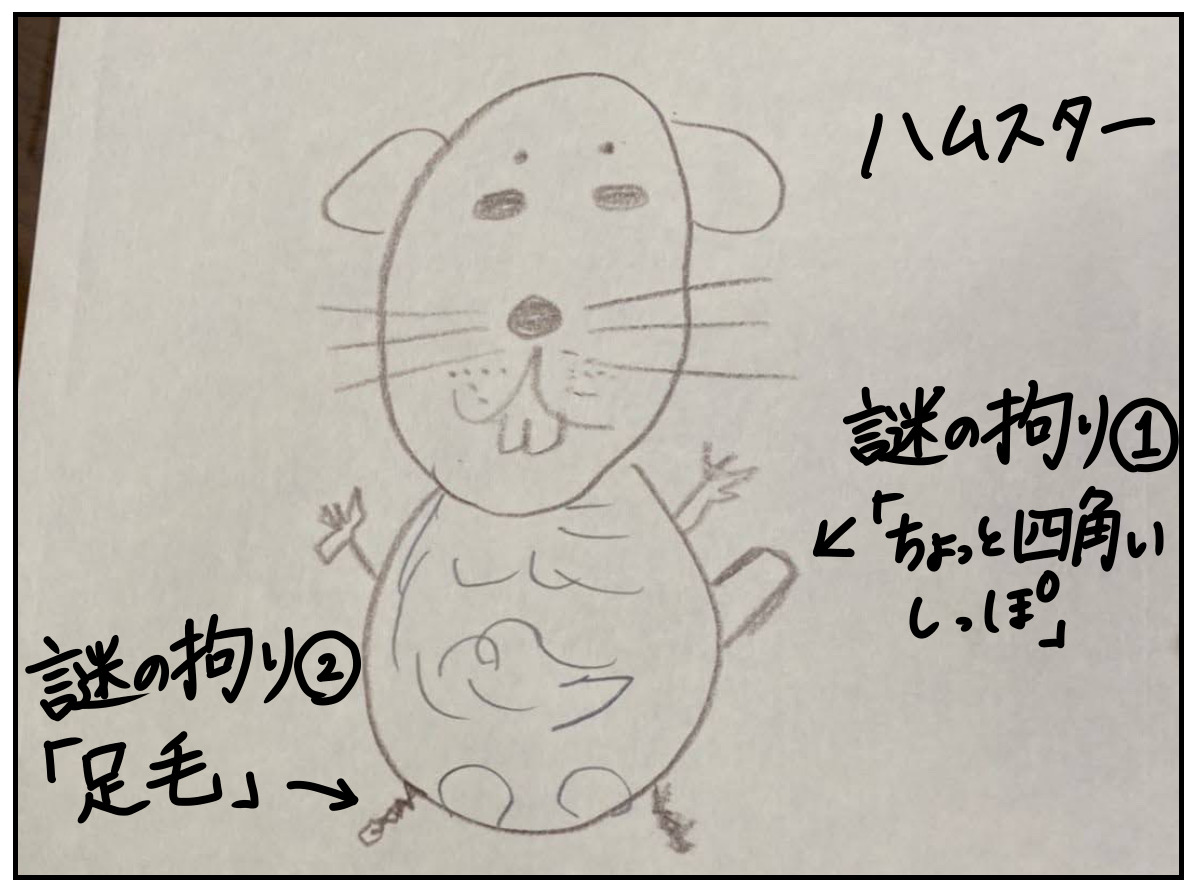 ハムスター
謎の拘り①
「ちょっと四角い
しっぽ」
謎の拘り②
「足毛」